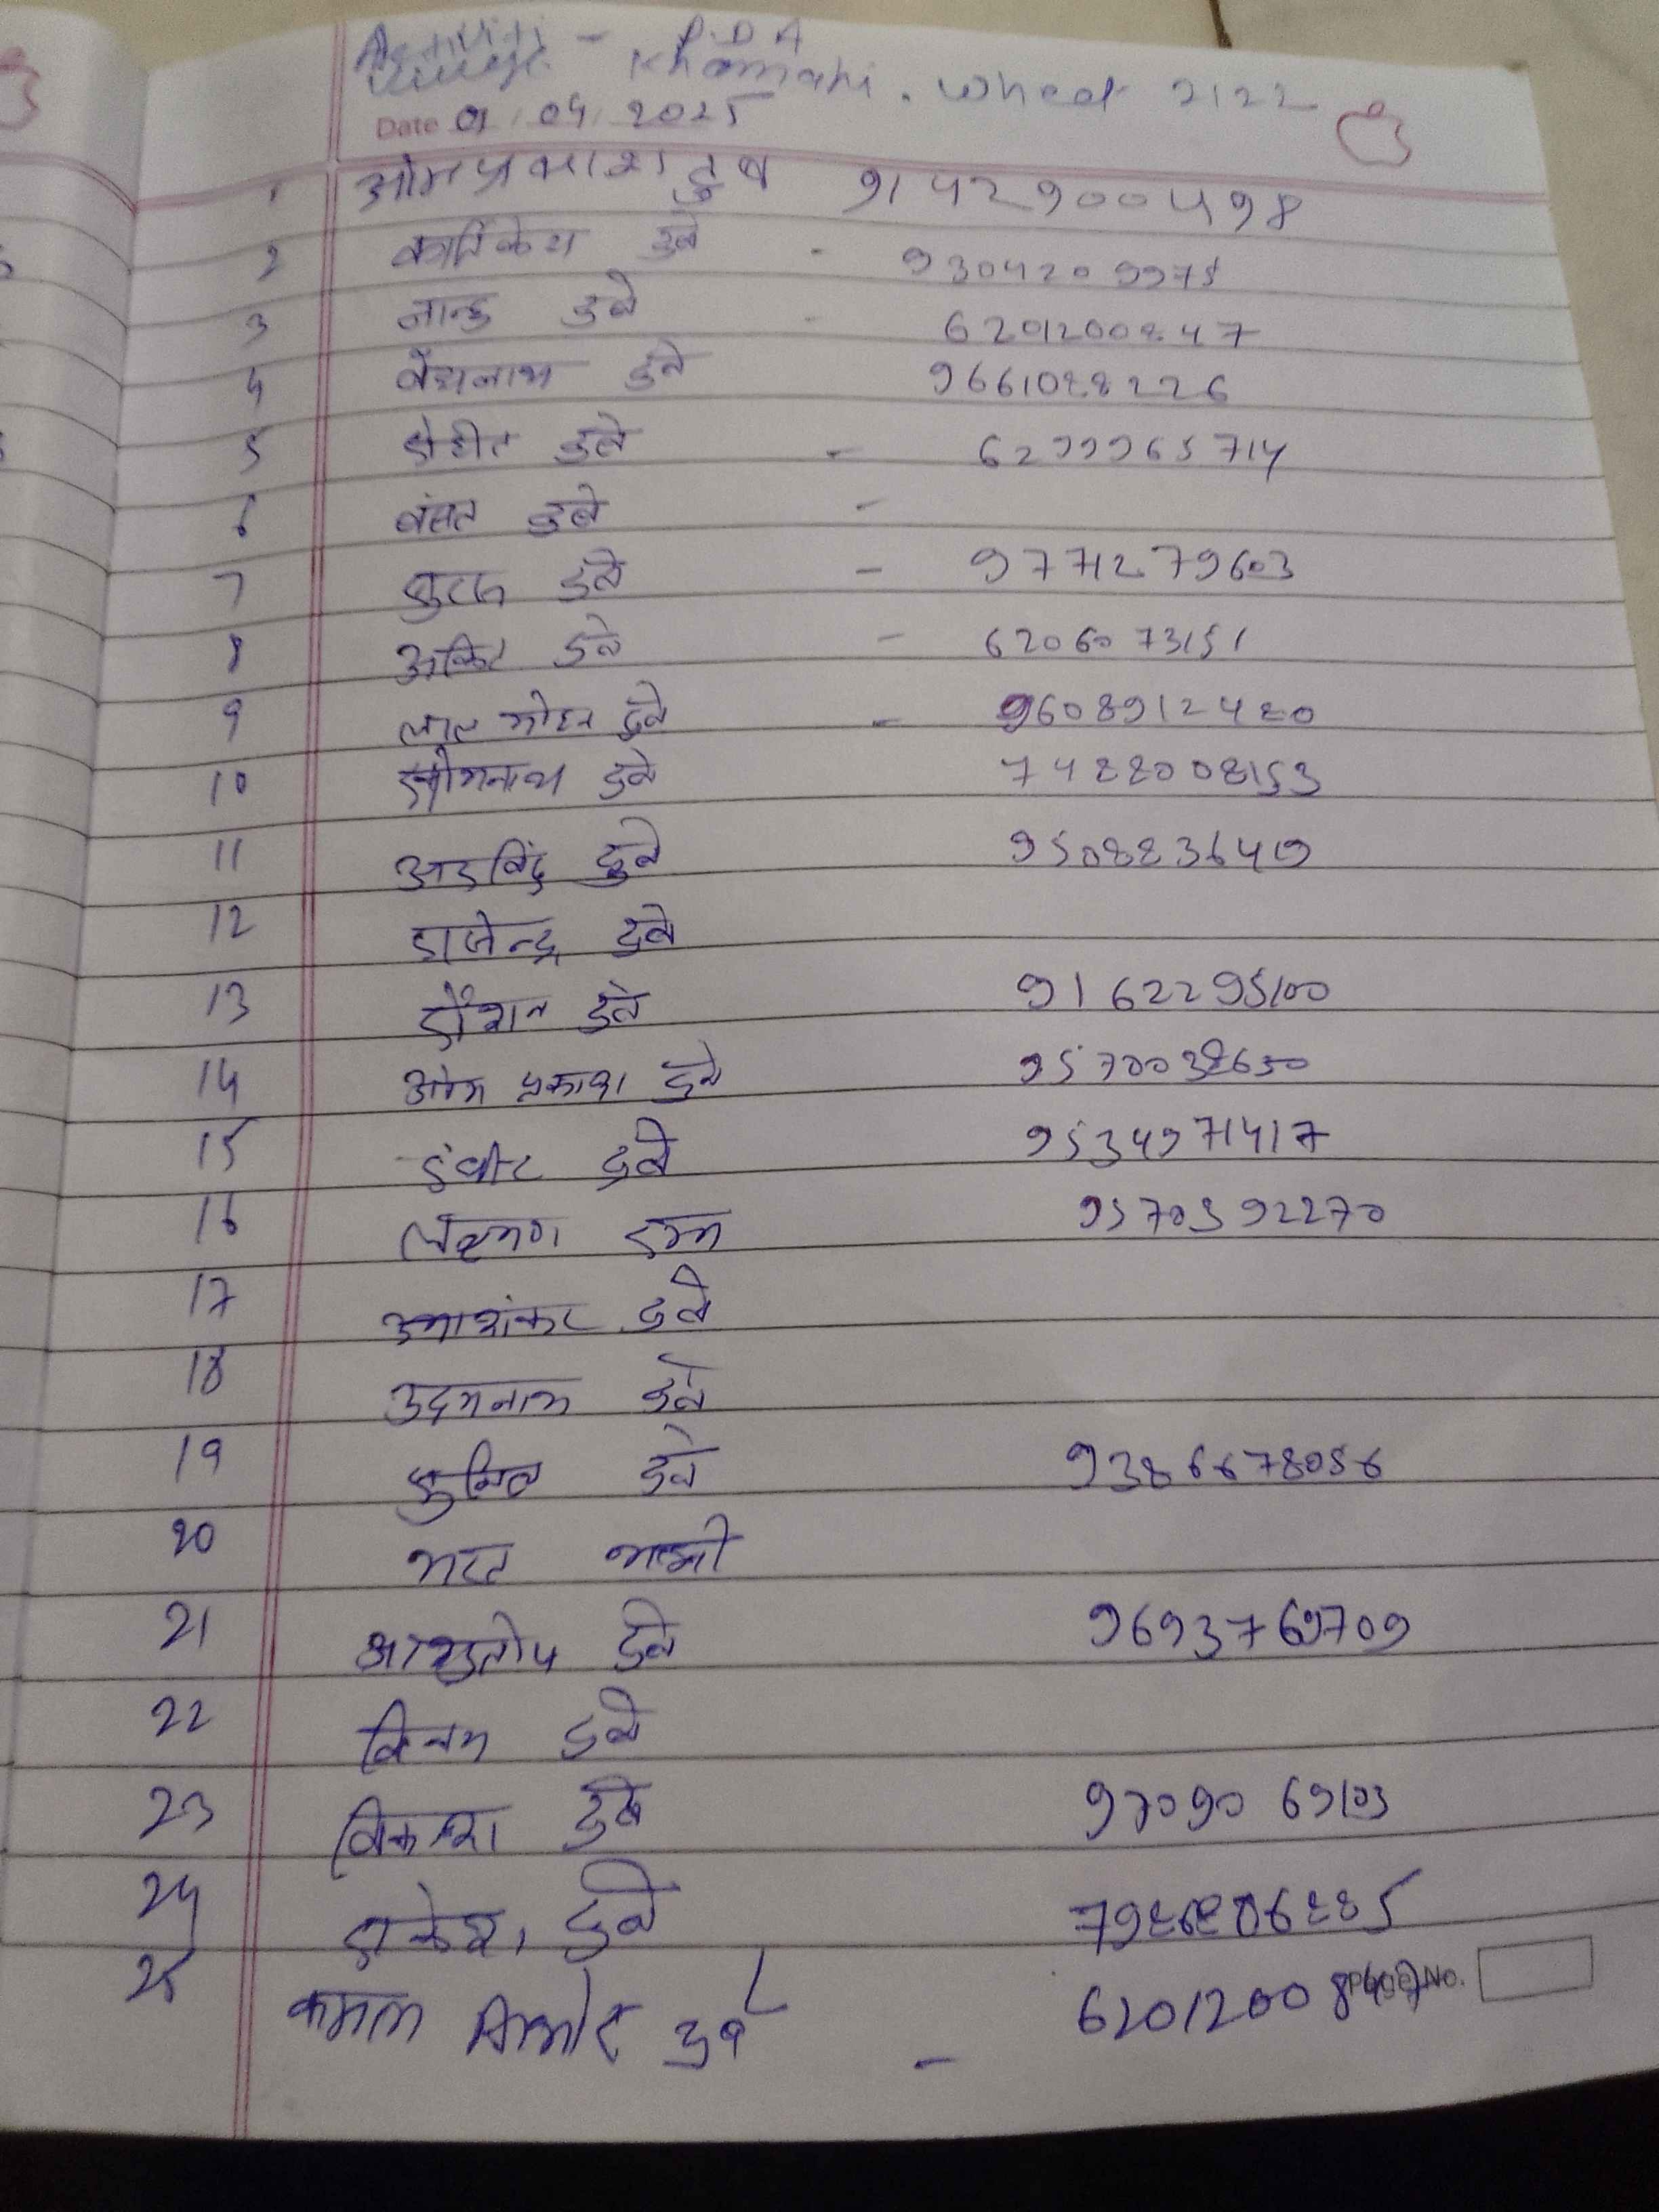 Activity - P.D.A
Village - Khamahi. wheat 2122
Date 01/04/2025
1 ओमप्रकाश दुबे 9142900498
2 कार्तिकेय दुबे - 9304209975
3 नान्हु दुबे - 6201200847
4 बैद्यनाथ दुबे 9661088226
5 रोहीत दुबे - 6299965714
6 बंसत दुबे -
7 सुरज दुबे - 9771279603
8 अंकित दुबे - 6206073151
9 लाल मोहन दुबे - 9608912480
10 सोमनाथ दुबे 7488008153
11 अरविंद दुबे 9508836419
12 राजेन्द्र दुबे
13 रौशन दुबे 9162295100
14 ओम प्रकाश दुबे 9570038650
15 रंधीर दुबे 9534971417
16 लक्ष्मण राम 9570592270
17 उमाशंकर दुबे
18 उदयनाथ दुबे
19 सुनिल दुबे 9386678056
20 भरत
21 आशुतोष दुबे 9693769709
22 विनय दुबे
23 विकाश दुबे 9709069103
24 राकेश दुबे
25 कमल किशोर दुबे -
Page No.